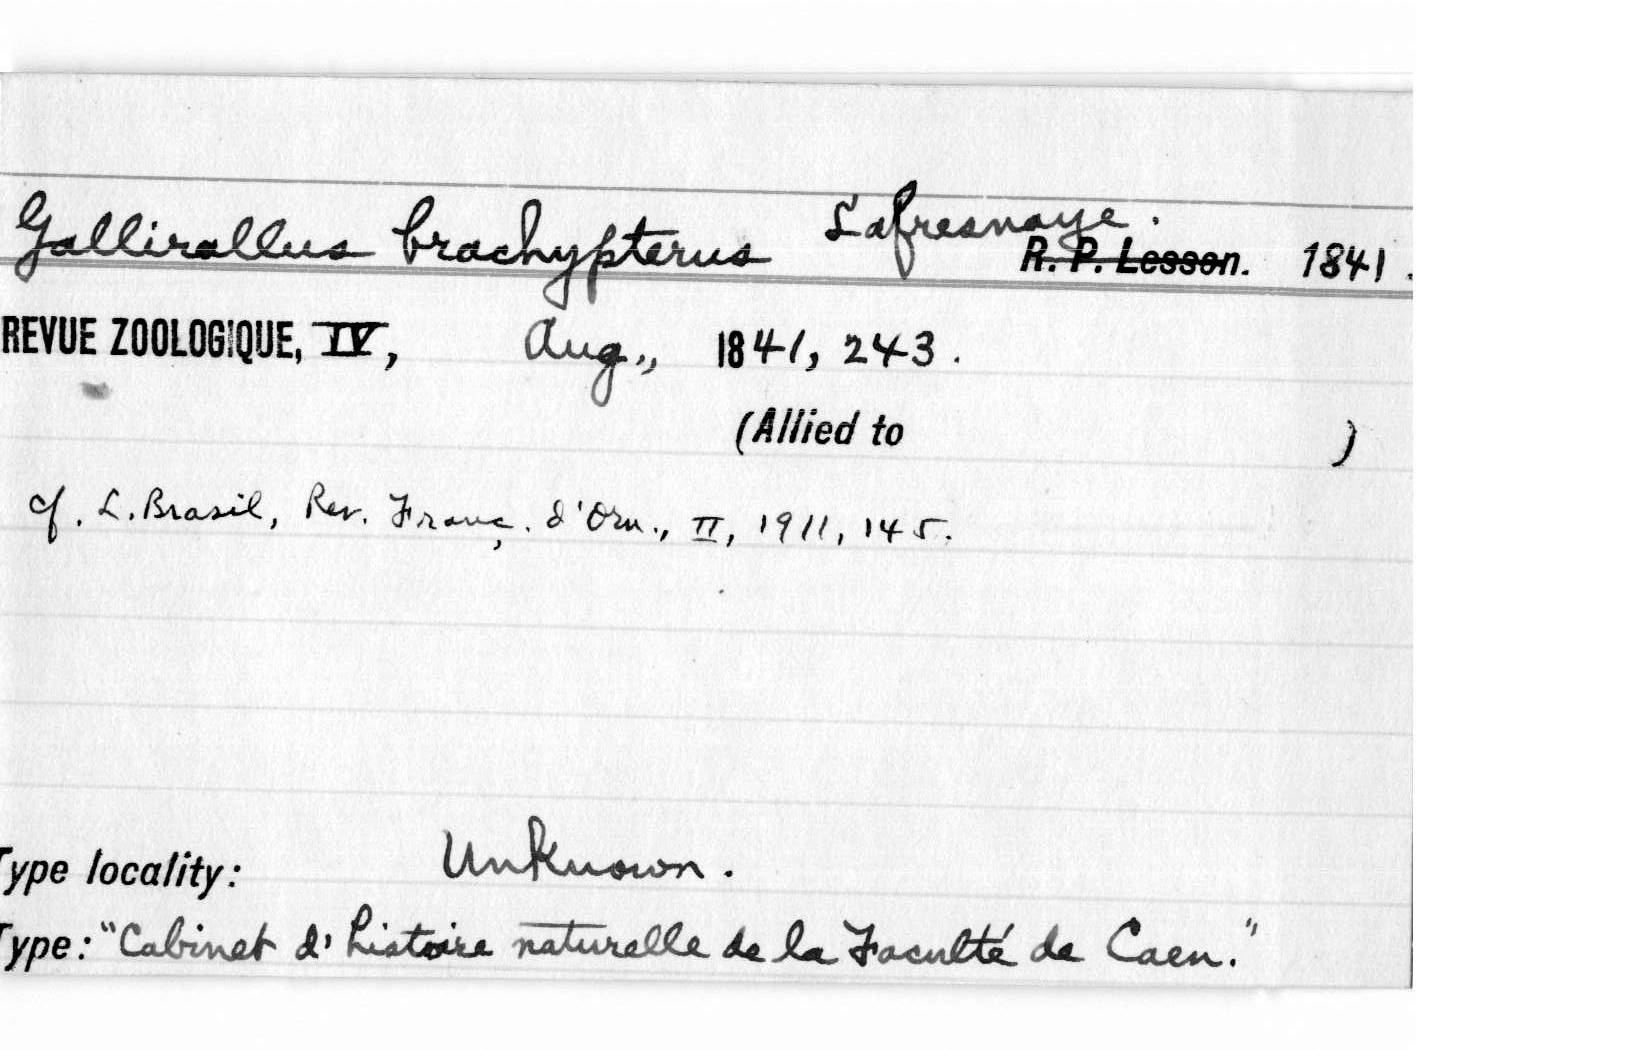 Gallirallus brachypterus Lafresnaye.
R. P. Lesson. 1841.
REVUE ZOOLOGIQUE, IV, Aug., 1841, 243.
(Allied to )
cf. L. Brasil, Rev. Franç. d'Orn., II, 1911, 145.
Type locality: Unknown.
Type: "Cabinet d'histoire naturelle de la Faculté de Caen."